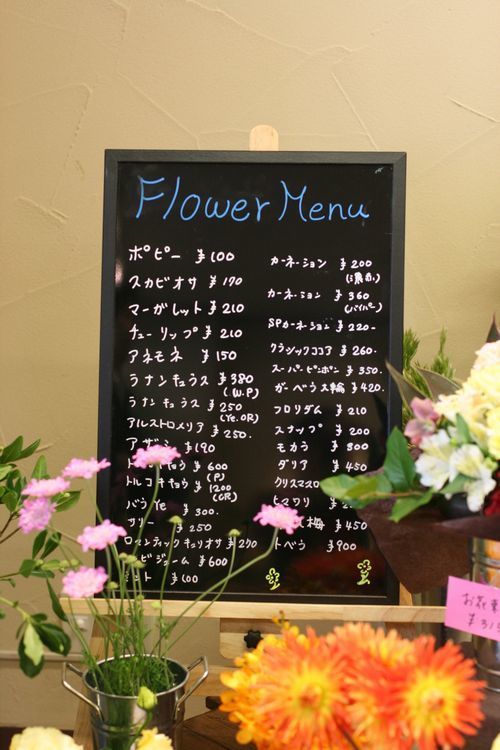 Flower Menu
ポピー ¥100
スカビオサ ¥170
マーガレット ¥210
チューリップ ¥210
アネモネ ¥150
ラナンキュラス ¥380
(W.P)
ラナンキュラス ¥250
(Ye.OR)
アルストロメリア ¥250.
¥190
¥600
(P)
トルコキキョウ ¥1200
(GR)
バラ Ye ¥300.
¥250
ロマンティックキュリオサ ¥270
¥600
ント ¥100
カーネーション ¥200
カーネーション ¥360
(バイパー)
SPカーネーション ¥220-
クラシックココア ¥260.
スーパーピンポン ¥350.
ガーベラ大輪 ¥420.
フロリダム ¥210
スナップ ¥200
モカラ ¥800
ダリア ¥450
クリスマスロ
ヒマワリ
梅 ¥450
トベラ ¥900
お花